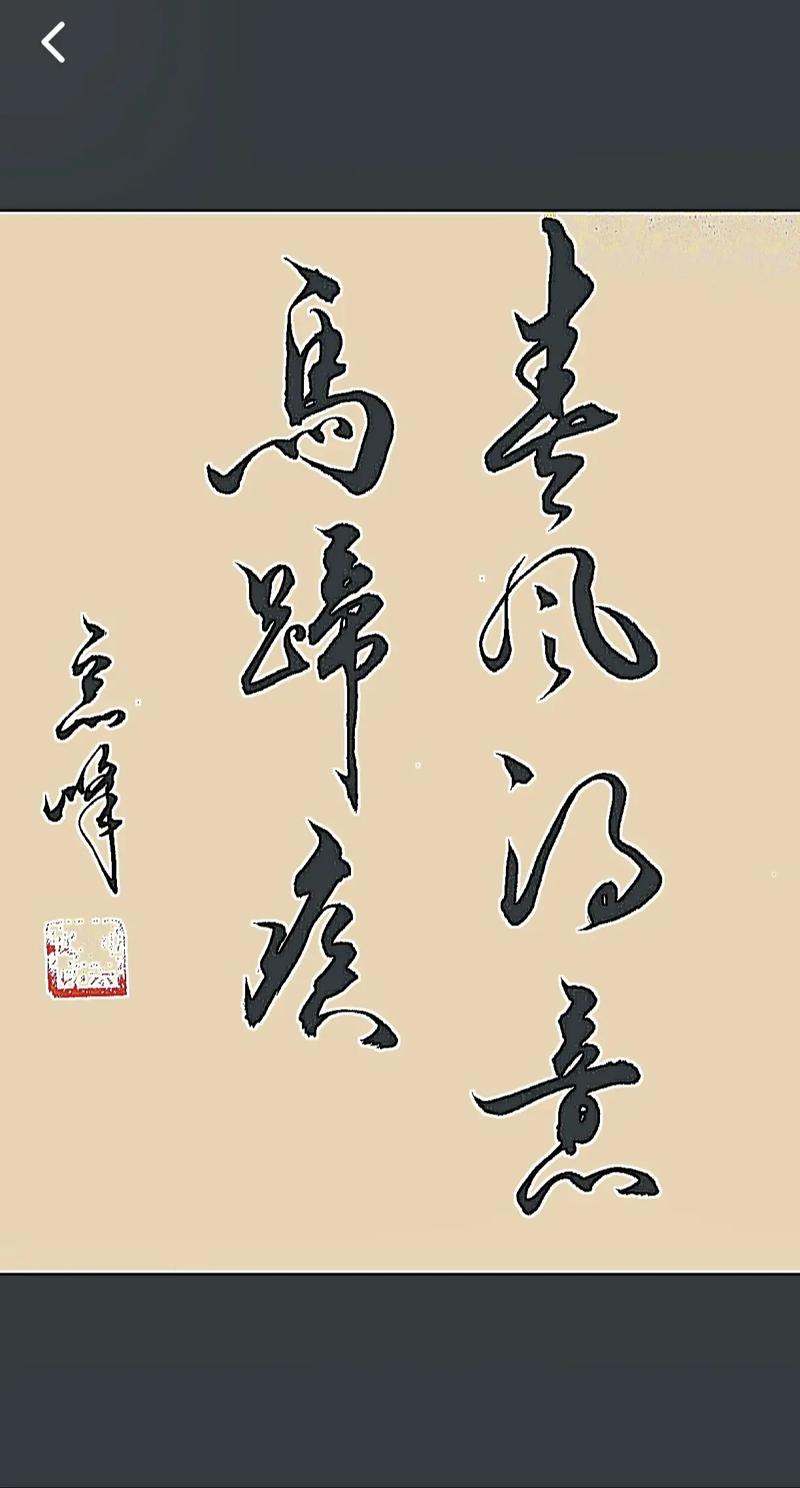 春風得意
馬蹄疾
峰